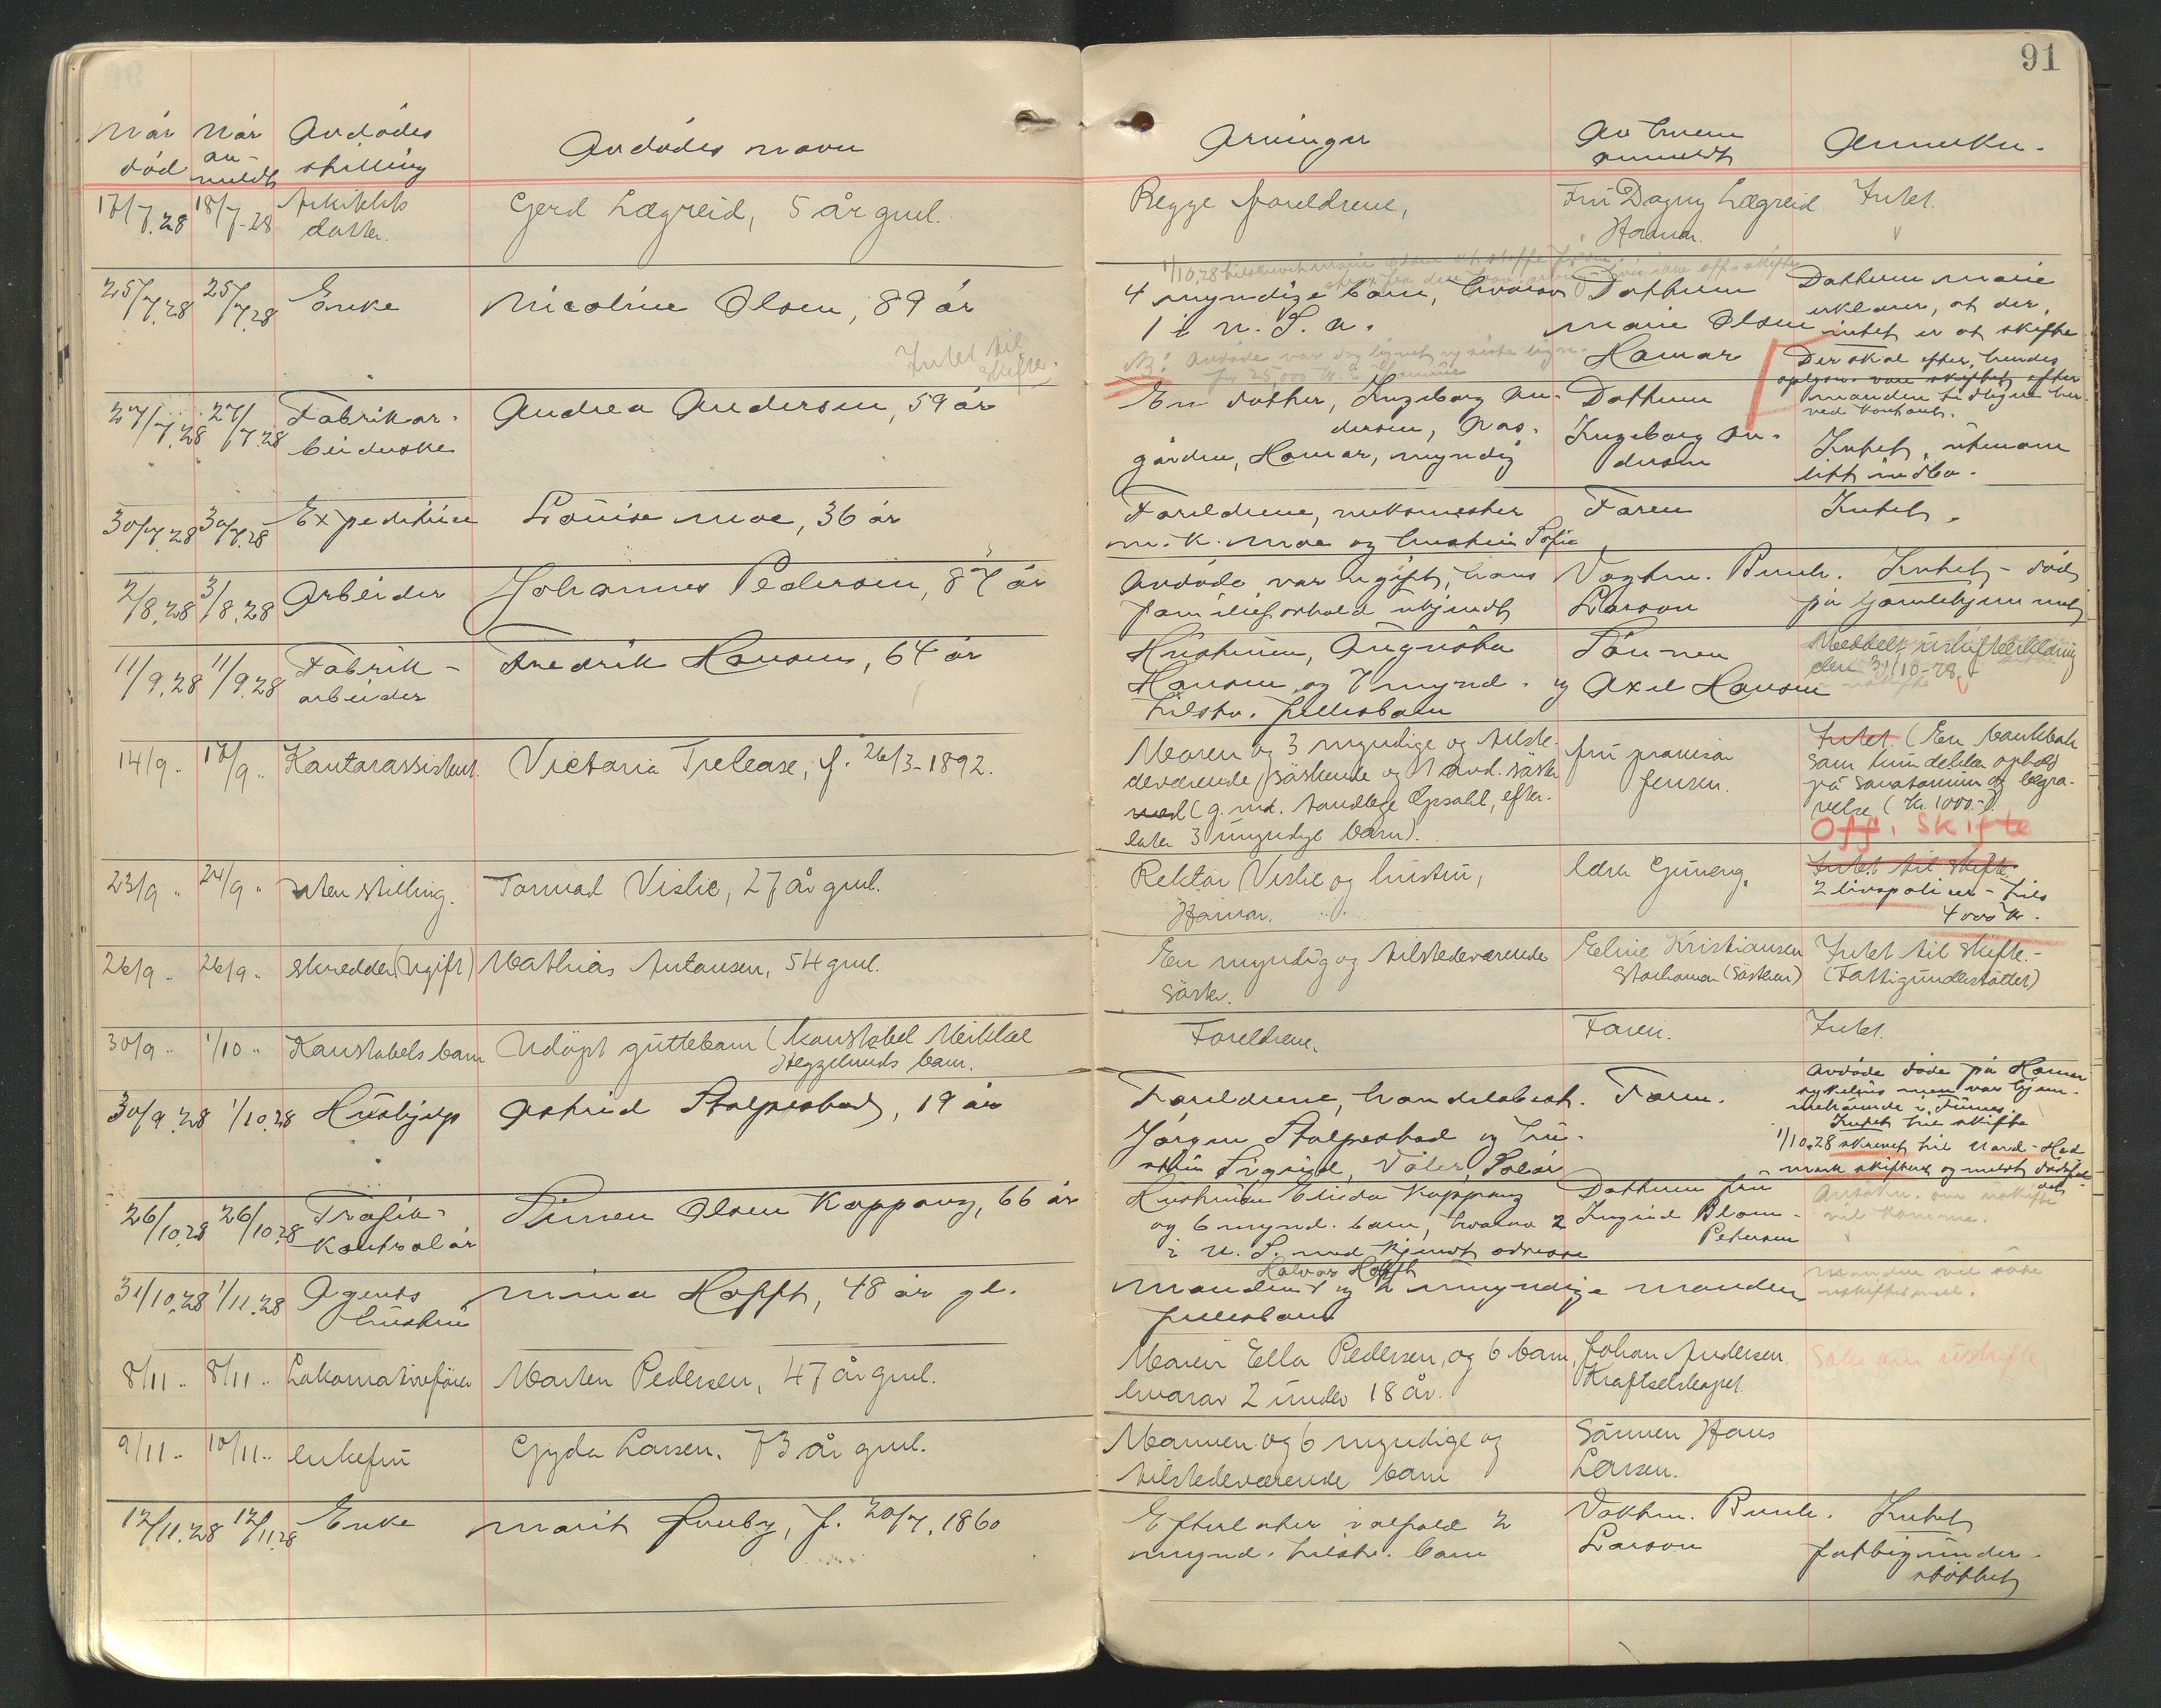 91
Når død
Når anmeldt
Avdødes stilling
Avdødes navn
Arvinger
Av hvem anmeldt
Anmerkn.
17/7.28 18/7-28 Arkitekts datter. Gerd Lægreid, 5 år gml.
Begge foreldrene,
Fru Dagny Lægreid Hamar.
Intet.
25/7.28 25/7.28 Enke Nicoline Olsen, 89 år
Intet til skifte.
4 myndige barn, hvorav
1 i U. S. A.
Datteren
Marie Olsen
Hamar
Datteren Marie
erklærer, at der
intet er at skifte
Der skal efter hendes
oplysn. være skiftet efter
manden tidligere her
ved kontoret.
NB! Avdøde var dog lignet og siste lign.
for 25,000 kr. i formue
27/7.28 27/7.28 Fabrikar-
beiderske
Andrea Andersen, 59 år
En datter, Ingeborg An-
dersen,
gården, Hamar, myndig
Datteren
Ingeborg An-
dersen
Intet, utenom
litt indbo.
30/7.28 30/7.28 Expeditrice Louise Moe, 36 år
Foreldrene, verksmester
M. K. Moe og hustru Sofie
Faren
Intet.
2/8.28 3/8.28 Arbeider Johannes Pedersen, 87 år
Avdøde var ugift, hans
familieforhold ukjendt
Vagtm. Bernh.
Larson
Intet - død
på gamlehjemmet
11/9.28 11/9.28 Fabrik-
arbeider
Fredrik Hansen, 64 år
Hustruen, Augusta
Hansen og 7 mynd. og
tilstv. fellesbarn
Sønnen
Axel Hansen
Meddelt uskifteerklæring
den 31/10-28.
14/9. 17/9.. Kontorassistent. Victoria Trelease, f. 26/3-1892.
Moren og 3 myndige og tilste-
deværende søskende og 1 avd. søster
med (g. m. tandlæge Opsahl, efter-
later 3 umyndige barn).
fru provisor
Jensen.
Intet. (En bankbok
som hun delder ophold
på sanatorium og begra-
velse (kr. 1000.-)
Off. Skifte
23/9 .. 24/9 .. Uten stilling. Tormod Vislie, 27 år gml.
Rektor Vislie og hustru,
Hamar.
Intet til skifte.
2 livspoliser - tils
4000 kr.
26/9.. 26/9.. skredder (ugift) Mathias Antonsen, 54 gml.
En myndig og tilstedeværende
søster.
Eline Kristiansen
Storhamar (søsteren)
Intet til skifte.-
(Fattigunderstøttet)
30/9 .. 1/10 .. Konstabels barn Udøpt guttebarn (konstabel Meikkel
Heggelunds barn.
Foreldrene.
Faren.
Intet.
30/9.28 1/10.28 Hushjelp Astrid Stolpestad, 19 år
Foreldrene, handelsbest.
Jørgen Stolpestad og hu-
stru Sigrid, Våler, Solør
Faren.
Avdøde døde på Hamar
sykehus men var hjem-
mehørende i Furnes.
Intet til skifte
1/10.28 skrevet til Nord-Hed-
mark skifteret og meldt dødsfal-
let
26/10.28 26/10.28 Trafik-
kontrolør
Simen Olsen Koppang, 66 år
Hustruen Elida Koppang
og 6 mynd. barn, hvorav 2
i U. S. med kjendt adresse
Datteren fru
Ingrid Blom-
Petersen
Ansøkn. om uskifte
vil komme.
31/10.28 1/11.28 Agents
hustru
Mina Hofft, 48 år gl.
Halvor Hofft
Manden og 2 myndige
fellesbarn
Manden
Manden vil søke
uskiftebevill.
8/11 .. 8/11 .. Lokomotivfører Morten Pedersen, 47 år gml.
Moren Ella Pedersen, og 6 barn,
hvorav 2 under 18 år.
Johan Andersen.
Kraftselskapet.
Søke om uskifte
9/11 .. 10/11.. enkefru Gyda Larsen. 73 år gml.
Mannen og 6 myndige og
tilstedeværende barn
Sønnen Hans
Larsen.
12/11.28 12/11.28 Enke Marit Furuby, f. 20/7.1860
Efterlater i alfald 2
mynd. tilstv. barn
Vaktm. Bernh.
Larson
Intet
fattigunder-
støttet